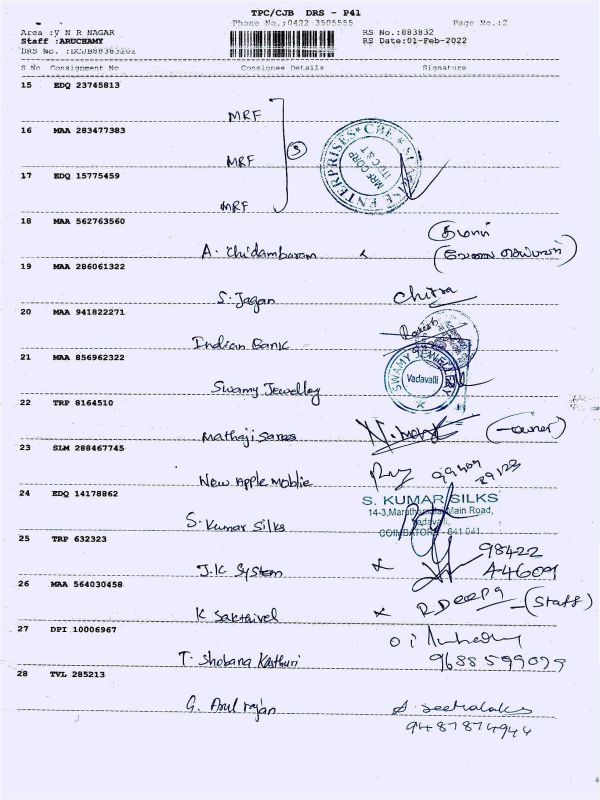 TPC/CJB DRS - P41
Phone No.:0422 3505555 Page No.:2
Area :V N R NAGAR RS No.:883832
Staff :ARUCHAMY RS Date:01-Feb-2022
DRS No. :DCJB88383202
S No Consignment No Consignee Details Signature
15 EDQ 23745813
MRF
16 MAA 283477383
MRF
3
SUNRISE ENTERPRISES * CBE *
MRF CORP
ITDC & T
17 EDQ 15775459
MRF
18 MAA 562763560
A. Chidambaram
19 MAA 286061322
S. Jagan Chitra
20 MAA 941822271
Indian Bank Rakesh
21 MAA 856962322
Swamy Jewellery
SWAMY JEWELLERY
Vadavalli
22 TRP 8164510
Mathaji Sarees (-owner)
23 SLM 288467745
New Apple Moblie
24 EDQ 14178862
S. Kumar Silks
S. KUMAR SILKS
14-3, Marathamalai Main Road,
Vadavalli,
COIMBATORE - 641 041.
25 TRP 632323
J.K System 98422
26 MAA 564030458
K Sakthivel R Deepa (Staff)
27 DPI 10006967
T. Shobana Kasthuri
28 TVL 285213
G. Arul rajan
9487874944